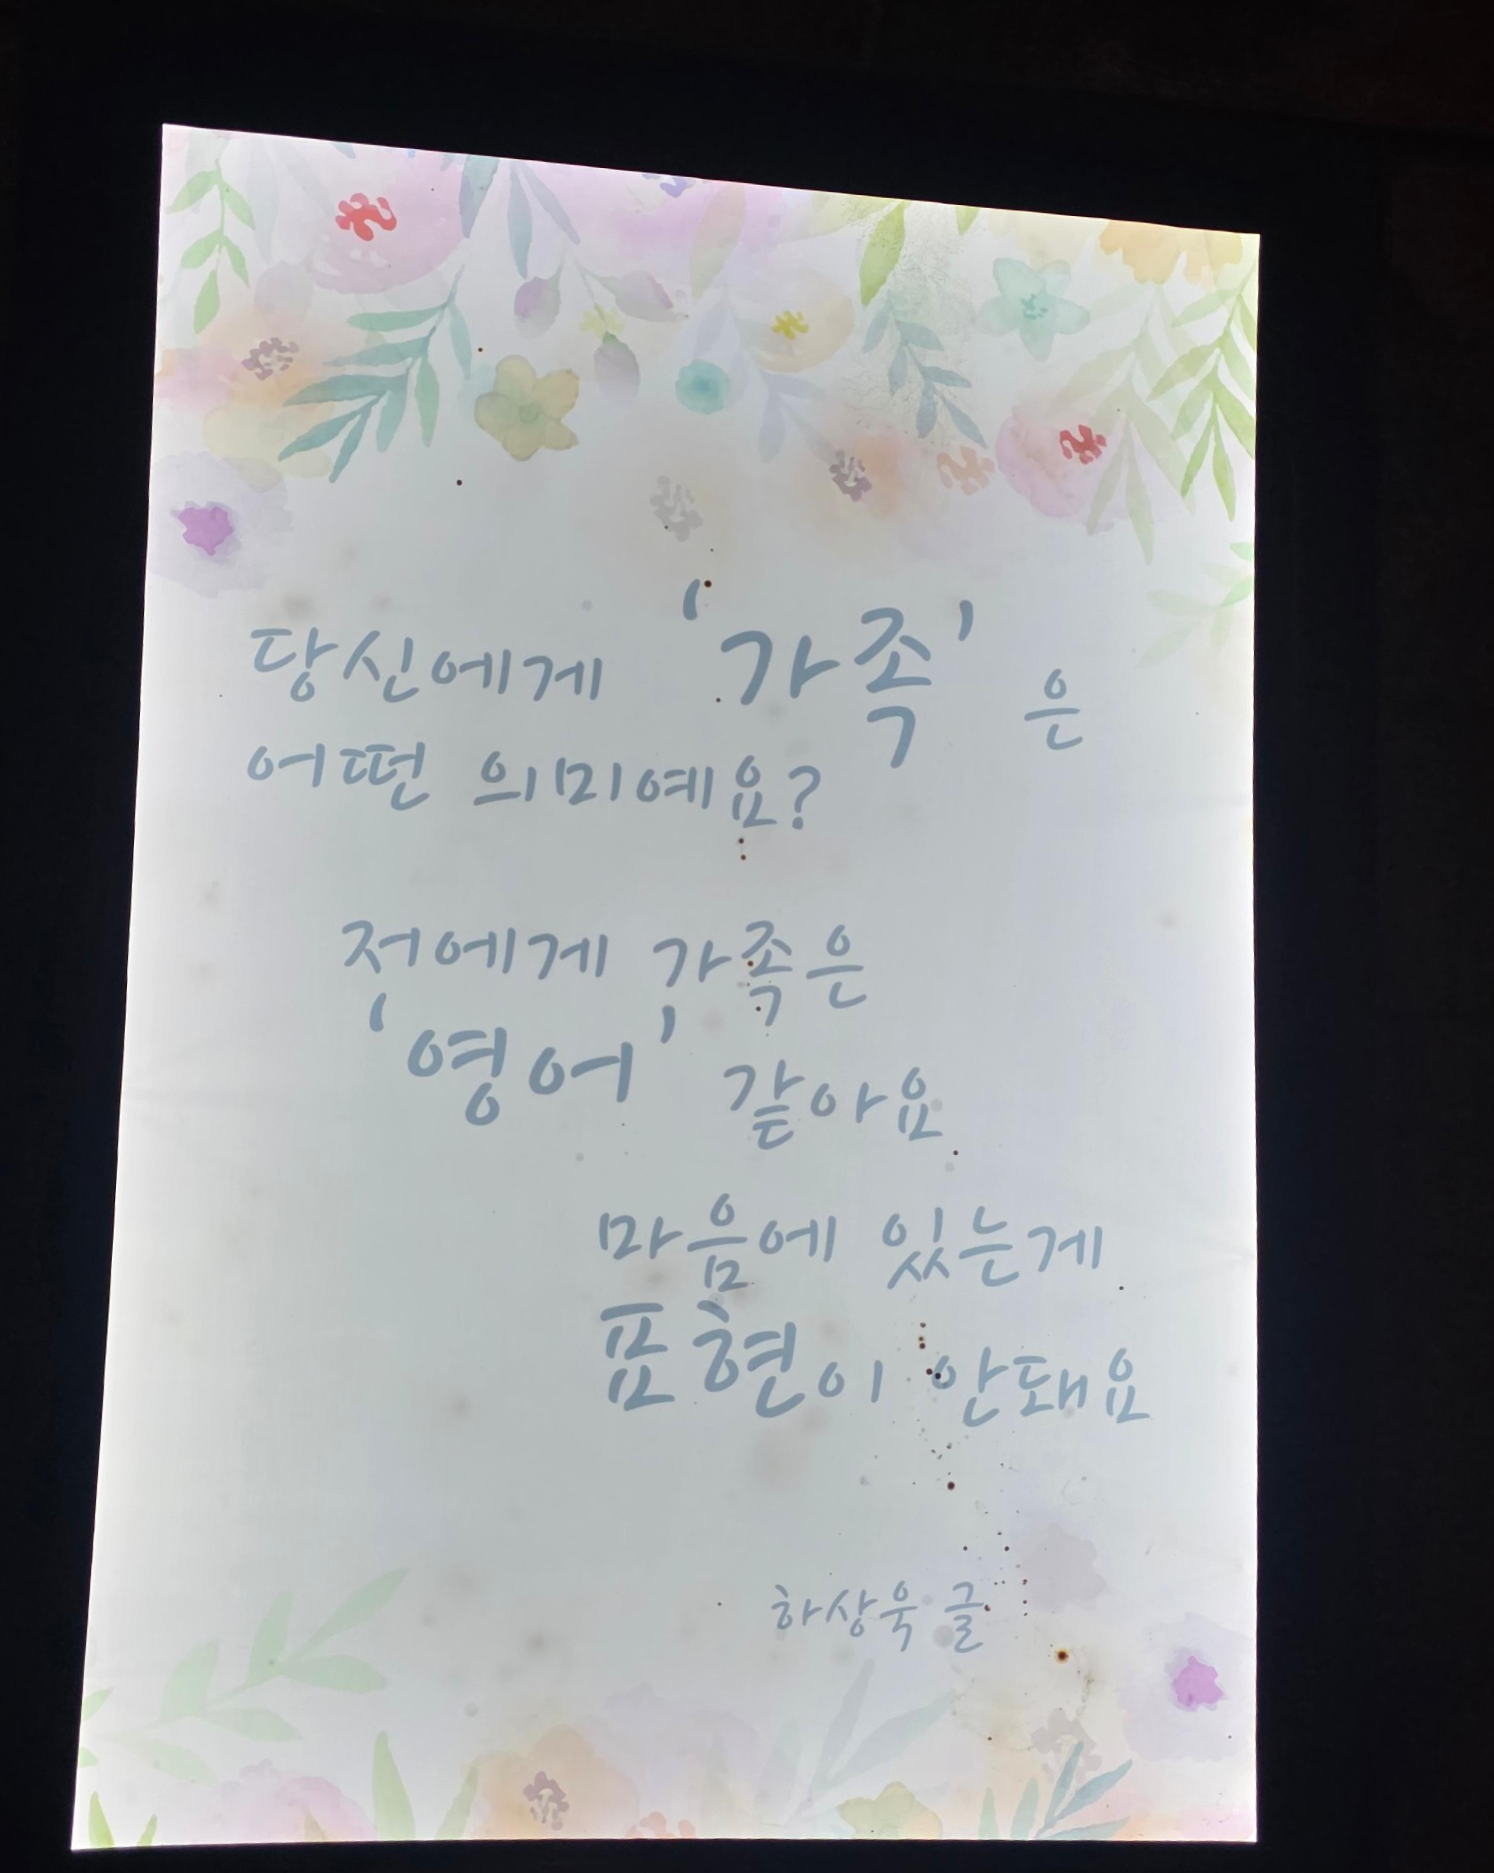 당신에게 '가족'은
어떤 의미예요?
전에게 가족은
'영어' 같아요
마음에 있는게
표현이 안돼요
하상욱 글